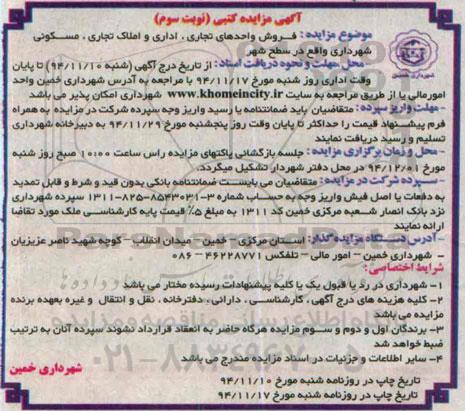 آگهی مزایده کتبی (نوبت سوم)
موضوع مزایده : فروش واحدهای تجاری ، اداری و املاک تجاری ، مسکونی
شهرداری واقع در سطح شهر
محل ،مهلت و نحوه دریافت اسناد: از تاریخ درج آگهی (شنبه ۹۴/۱۱/۱۰) تا پایان
وقت اداری روز شنبه مورخ ۹۴/۱۱/۱۷ با مراجعه به آدرس شهرداری خمین واحد
امورمالی یا از طریق مراجعه به سایت www.khomeincity.ir شهرداری امکان پذیر می باشد
- مهلت واریز سپرده: متقاضیان باید ضمانتنامه یا رسید واریز وجه سپرده شرکت در مزایده به همراه
فرم پیشنهاد قیمت را حداکثر تا پایان وقت روز پنجشنبه مورخ ۹۴/۱۱/۲۹ به دبیرخانه شهرداری
تسلیم و رسید دریافت نمایند
- محل و زمان برگزاری مزایده : جلسه بازگشائی پاکتهای مزایده راس ساعت ۱۰:۰۰ صبح روز شنبه
مورخ ۹۴/۱۲/۰۱ در محل دفتر شهردار تشکیل میگردد.
- سپرده شرکت در مزایده: متقاضیان می بایست ضمانتنامه بانکی بدون قید و شرط و قابل تمدید
به دفعات یا اصل فیش واریز وجه به حساب شماره ۳-۸۵۴۳۰۳۱-۸۲۵-۱۳۱۱ سپرده شهرداری
نزد بانک انصار شعبه مرکزی خمین کد ۱۳۱۱ به مبلغ ۵٪ قیمت پایه کارشناسی ملک مورد تقاضا
ارائه نمایند
- آدرس دستگاه مزایده گذار: استان مرکزی - خمین - میدان انقلاب - کوچه شهید ناصر عزیزیان
- شهرداری خمین - امور مالی - تلفکس ۴۶۲۲۸۷۷۱ - ۰۸۶
شرایط اختصاصی:
۱- شهرداری در رد یا قبول یک یا کلیه پیشنهادات رسیده مختار می باشد
۲- کلیه هزینه های درج آگهی ، کارشناسی ، دارائی ، دفترخانه ، نقل و انتقال و غیره بعهده برنده
مزایده می باشد
۳- برندگان اول و دوم و سوم مزایده هرگاه حاضر به انعقاد قرارداد نشوند سپرده آنان به ترتیب
ضبط خواهد شد
۴- سایر اطلاعات و جزئیات در اسناد مزایده مندرج می باشد
تاریخ چاپ در روزنامه شنبه مورخ ۹۴/۱۱/۱۰
تاریخ چاپ در روزنامه شنبه مورخ ۹۴/۱۱/۱۷
شهرداری خمین
شهرداری خمین